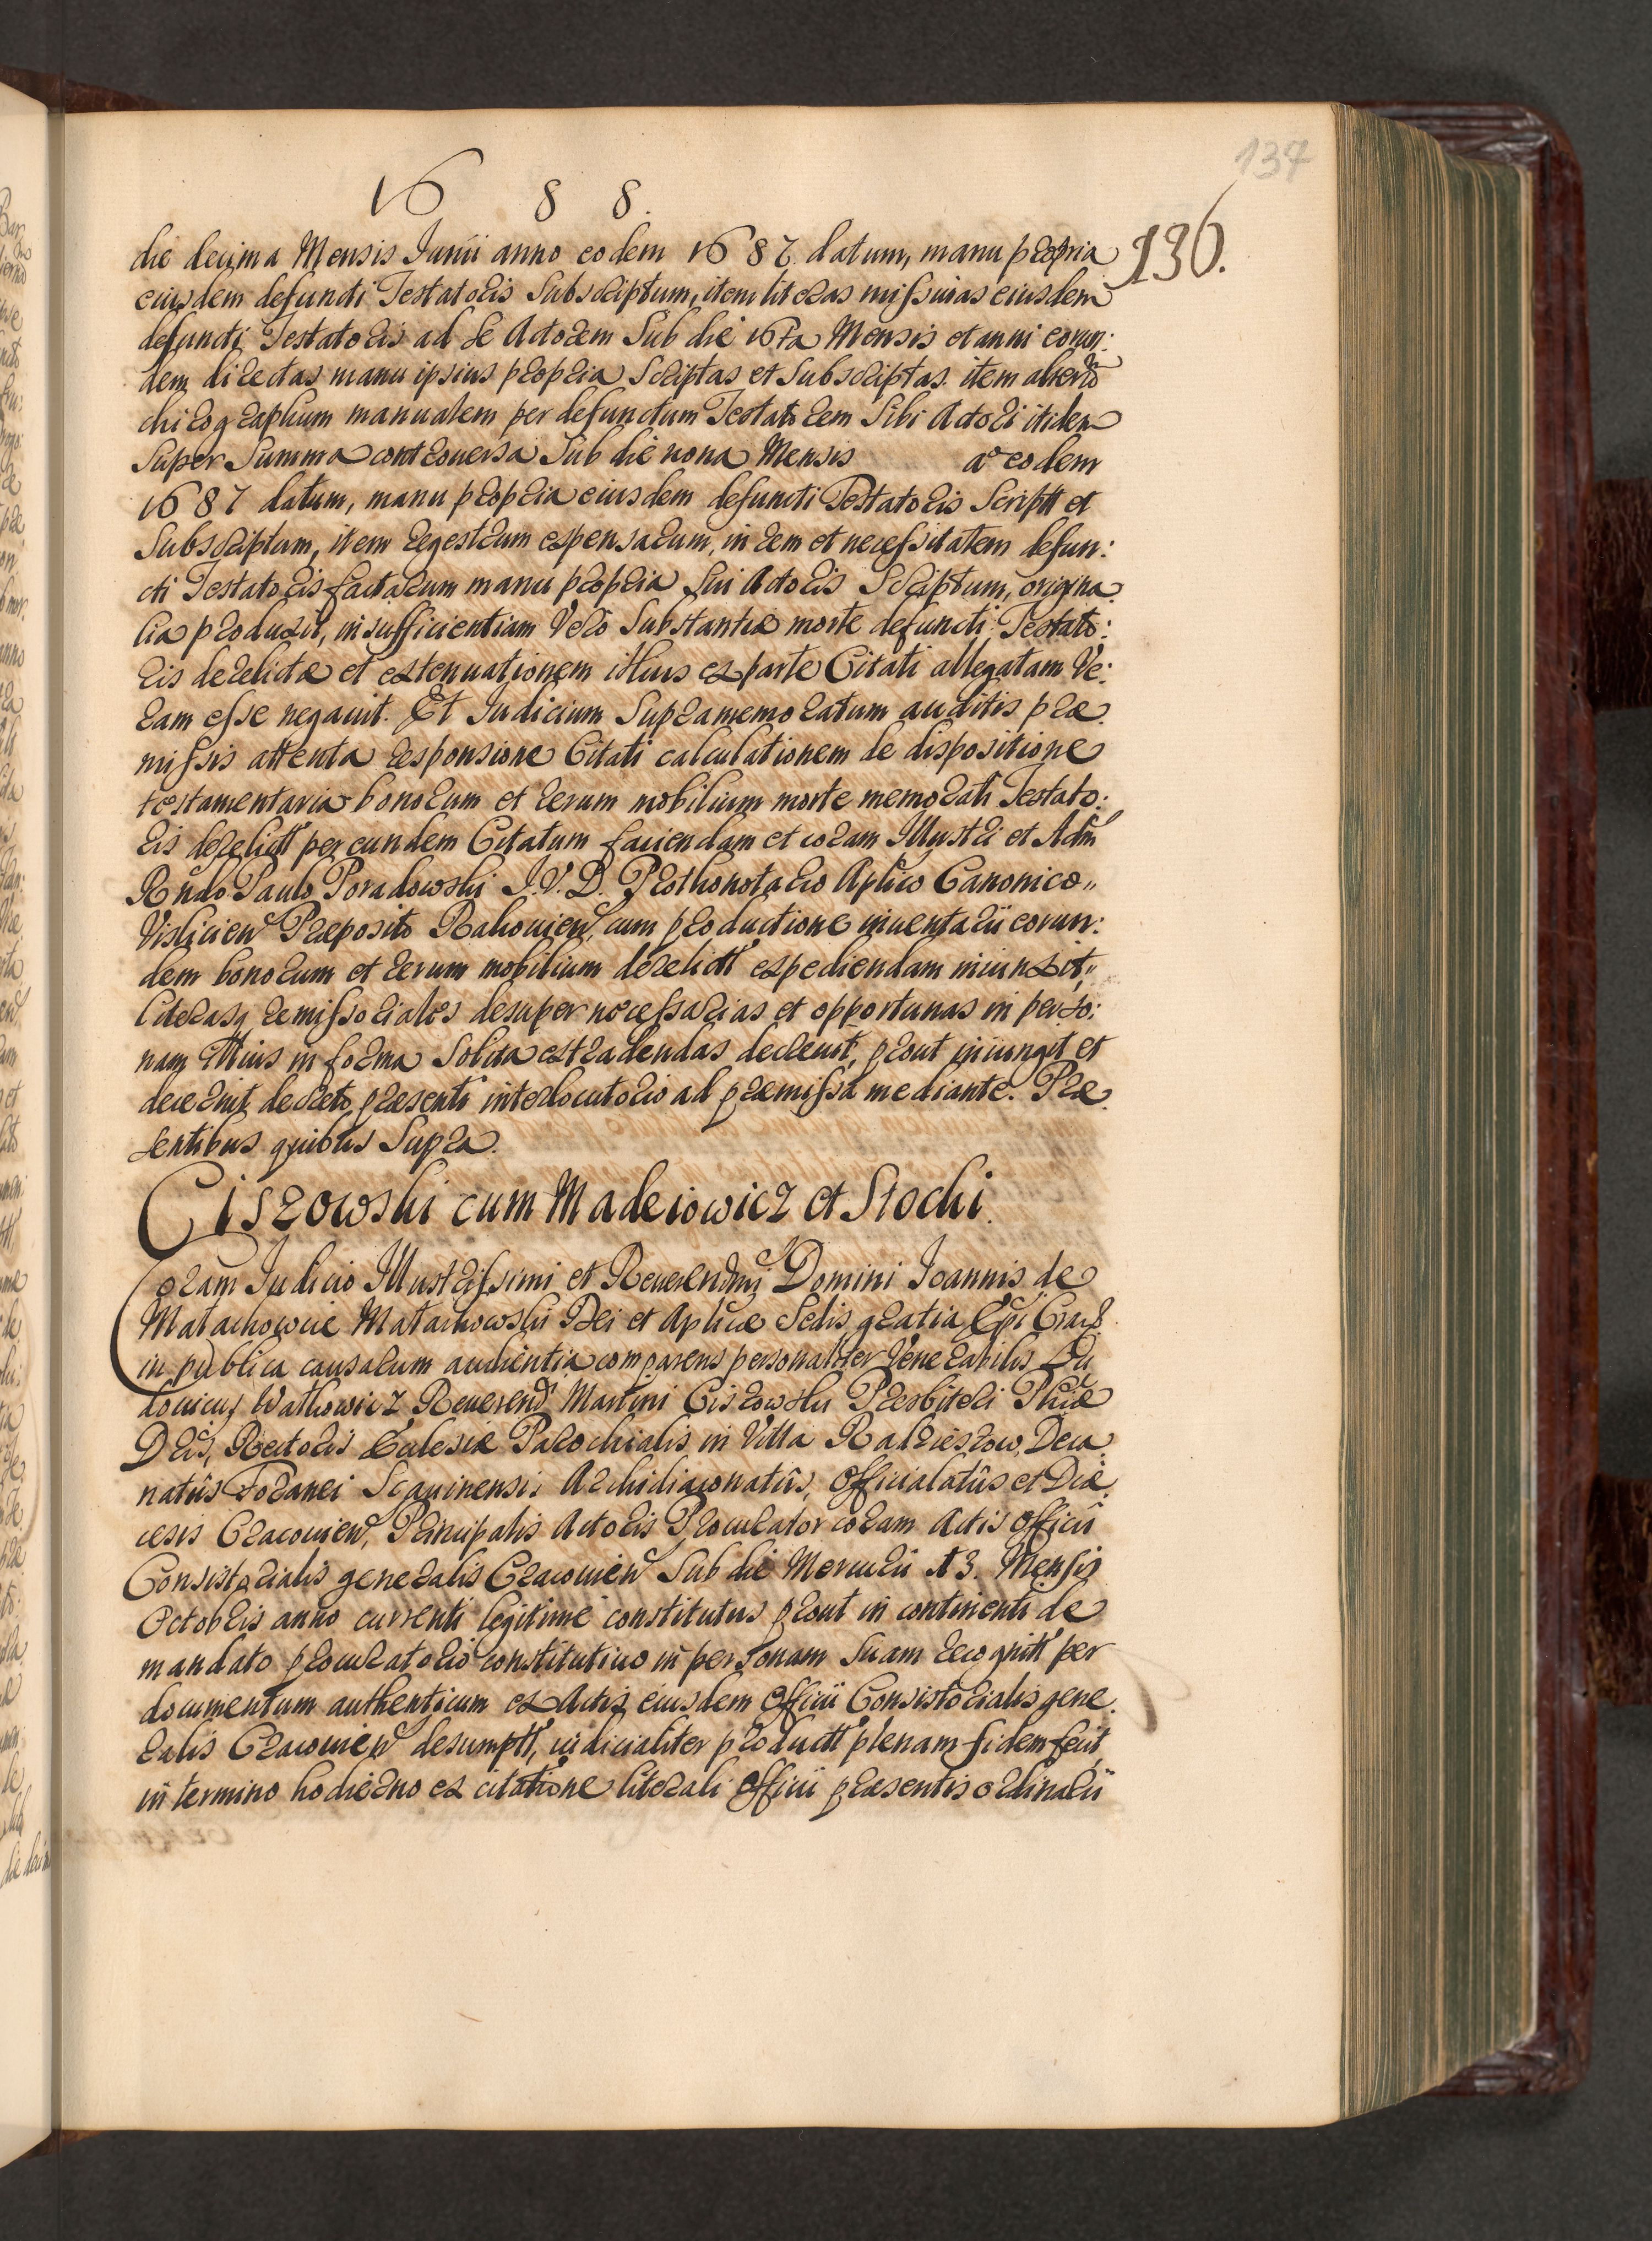 134
1688.
136.
die decima Mensis Junii anno eodem 1687 datum, manu propria
eiusdem defuncti Testatoris Subscriptum, item literas missivas eiusdem
defuncti Testatoris ad se Actorem Sub die 16ta Mensis et anni eorun:
dem directas manu ipsius propria Scriptas et Subscriptas. item
chirographum manualem per defunctum Testatorem Sibi Actori itidem
Super Summa controversa Sub die nona Mensis a° eodem
1687 datum, manu propria eiusdem defuncti Testatoris Scriptt et
Subscriptum, item regestrum expensarum, in rem et necessitatem defun:
cti Testatoris factarum manu propria sui Actoris Scriptum, origina.
lia produxit, insufficientiam Vero Substantiæ morte defuncti Testato:
ris derelictæ et extenuationem illius ex parte Citati allegatam Ve:
ram esse negavit. Et Iudicium Supramemoratum auditis præ.
missis attenta responsione Citati calculationem de dispositione
testamentaria bonorum et rerum mobilium morte memorati Testato:
ris derelictt per eundem Citatum faciendam et coram Illustri et Adm
Rndo Paulo Poradowski J.V.D. Prothonotario Aplico Canonico„
Vislicien Præposito Rakovien, cum productione inventarii eorun:
dem bonorum et rerum mobilium derelictt expediendam iniunxit,„
literasq remissoriales desuper necessarias et opportunas in perso:
nam illius in forma Solita extradendas decrevit, prout iniungit et
decernit decreto præsenti interlocutorio ad præmissa mediante. Præ.
sentibus quibus Supra.
Ciszowski cum Madeiowicz et Stocki.
Coram Judicio Illustrissimi et Reverendmi Domini Ioannis de
Małachowcie Małachowski Dei et Aplicæ Sedis gratia Epi Crac
in publica causarum audientia comparens personaliter Venerabilis Lu
dovicus Wathowicz Reverend Martini Ciszowski Presbiteri Phiæ
Dris, Rectoris Ecclesiæ Parochialis in Villa Radzieszow, Deca
natûs Foranei Scavinensis Archidiaconatûs, Officialatûs et Diæ.
cesis Cracovien, Principalis Actoris Procurator coram Actis Officii
Consistorialis generalis Cracovien Sub die Mercurii 13. Mensis
Octobris anno currenti legitime constitutus prout in continenti de
mandato procuratorio constitutivo in personam Suam recognitt per
documentum authenticum ex Actis eiusdem Officii Consistorialis gene.
ralis Cracovien desumptt, iudicialiter productt plenam fidem fecit,
in termino hodierno ex citatione literali Officii præsentis ordinarii